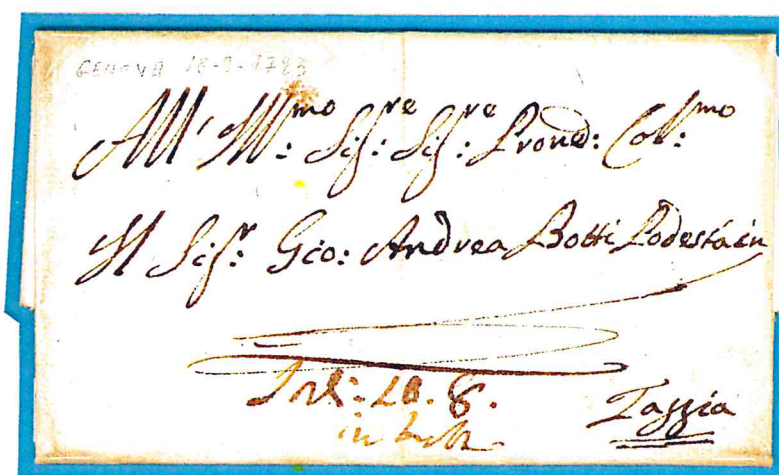 GENOVA 18-9-1783
All' Ill:mo Sig:re Sig:re Prone: Col:mo
Il Sig:r Gio: Andrea Botti Podestà in
8.
in
Taggia